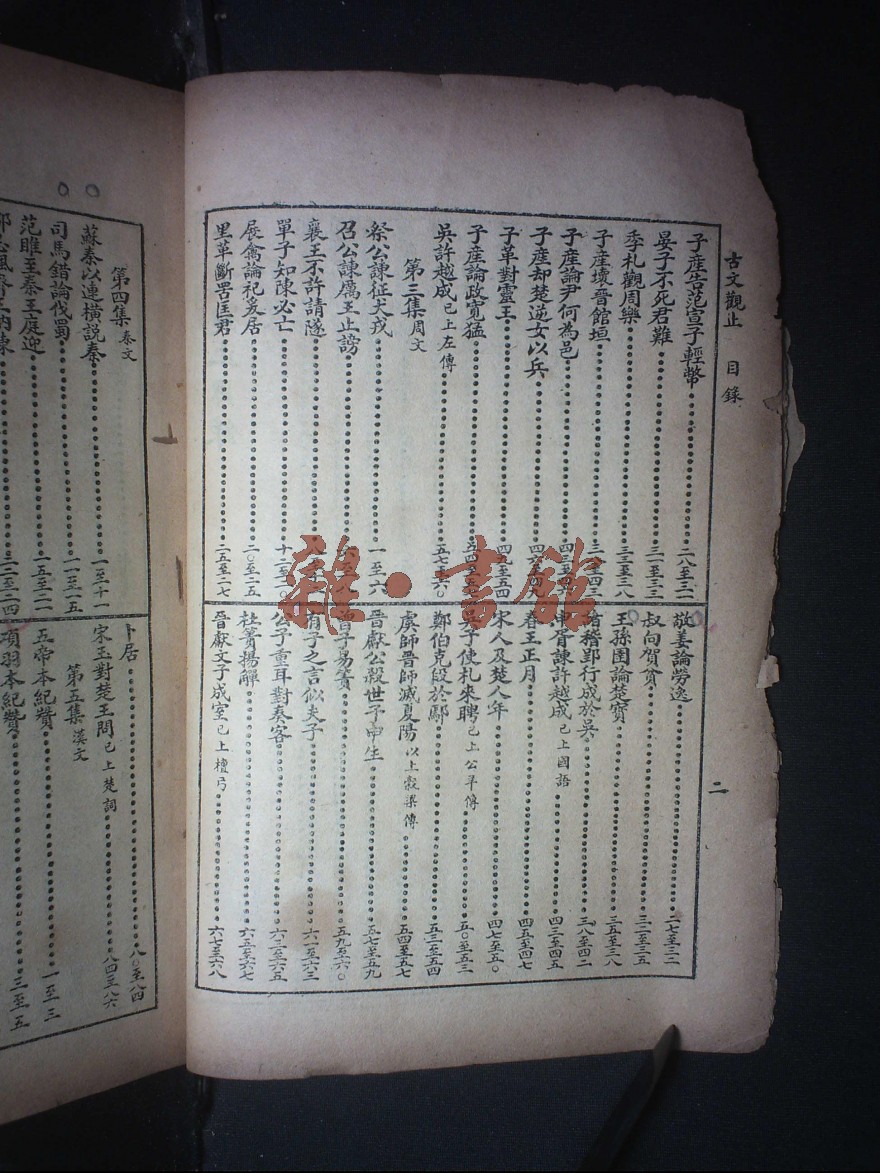 古文觀止 目錄
二
子產告范宣子輕幣 二八至三一
晏子不死君難 三一至三三
季札觀周樂 三三至三八
子產壞晉館垣
子產論尹何為邑
子產却楚逆女以兵
子革對靈王 四九至五四
子產論政寬猛
吳許越成 已上左傳 五七至六〇
第三集 周文
祭公諫征犬戎 一至六
召公諫厲王止謗
襄王不許請隧
單子知陳必亡 十二至二〇
展禽論祀爰居 二〇至二五
里革斷罟匡君 二五至二七
敬姜論勞逸 二七至三二
叔向賀貧 三二至三五
王孫圉論楚寶 三五至三八
諸稽郢行成於吳 三八至四二
申胥諫許越成 已上國語 四三至四五
春王正月 四五至四七
宋人及楚人平 四七至五〇
吳子使札來聘 已上公羊傳 五〇至五三
鄭伯克段於鄢 五三至五四
虞師晉師滅夏陽 以上穀梁傳 五四至五七
晉獻公殺世子申生 五七至五九
曾子易簀 五九至六〇
有子之言似夫子 六一至六三
公子重耳對秦客 六三至六五
杜蕢揚觶 六五至六七
晉獻文子成室 已上檀弓 六七至六八
第四集 秦文
蘇秦以連橫說秦 一至十一
司馬錯論伐蜀 一一至一五
范雎至秦王庭迎 一五至二一
二二至二四
卜居 八〇至八四
宋玉對楚王問 已上楚詞 八四至八六
第五集 漢文
五帝本紀贊 一至三
項羽本紀贊 三至五
雜·書館